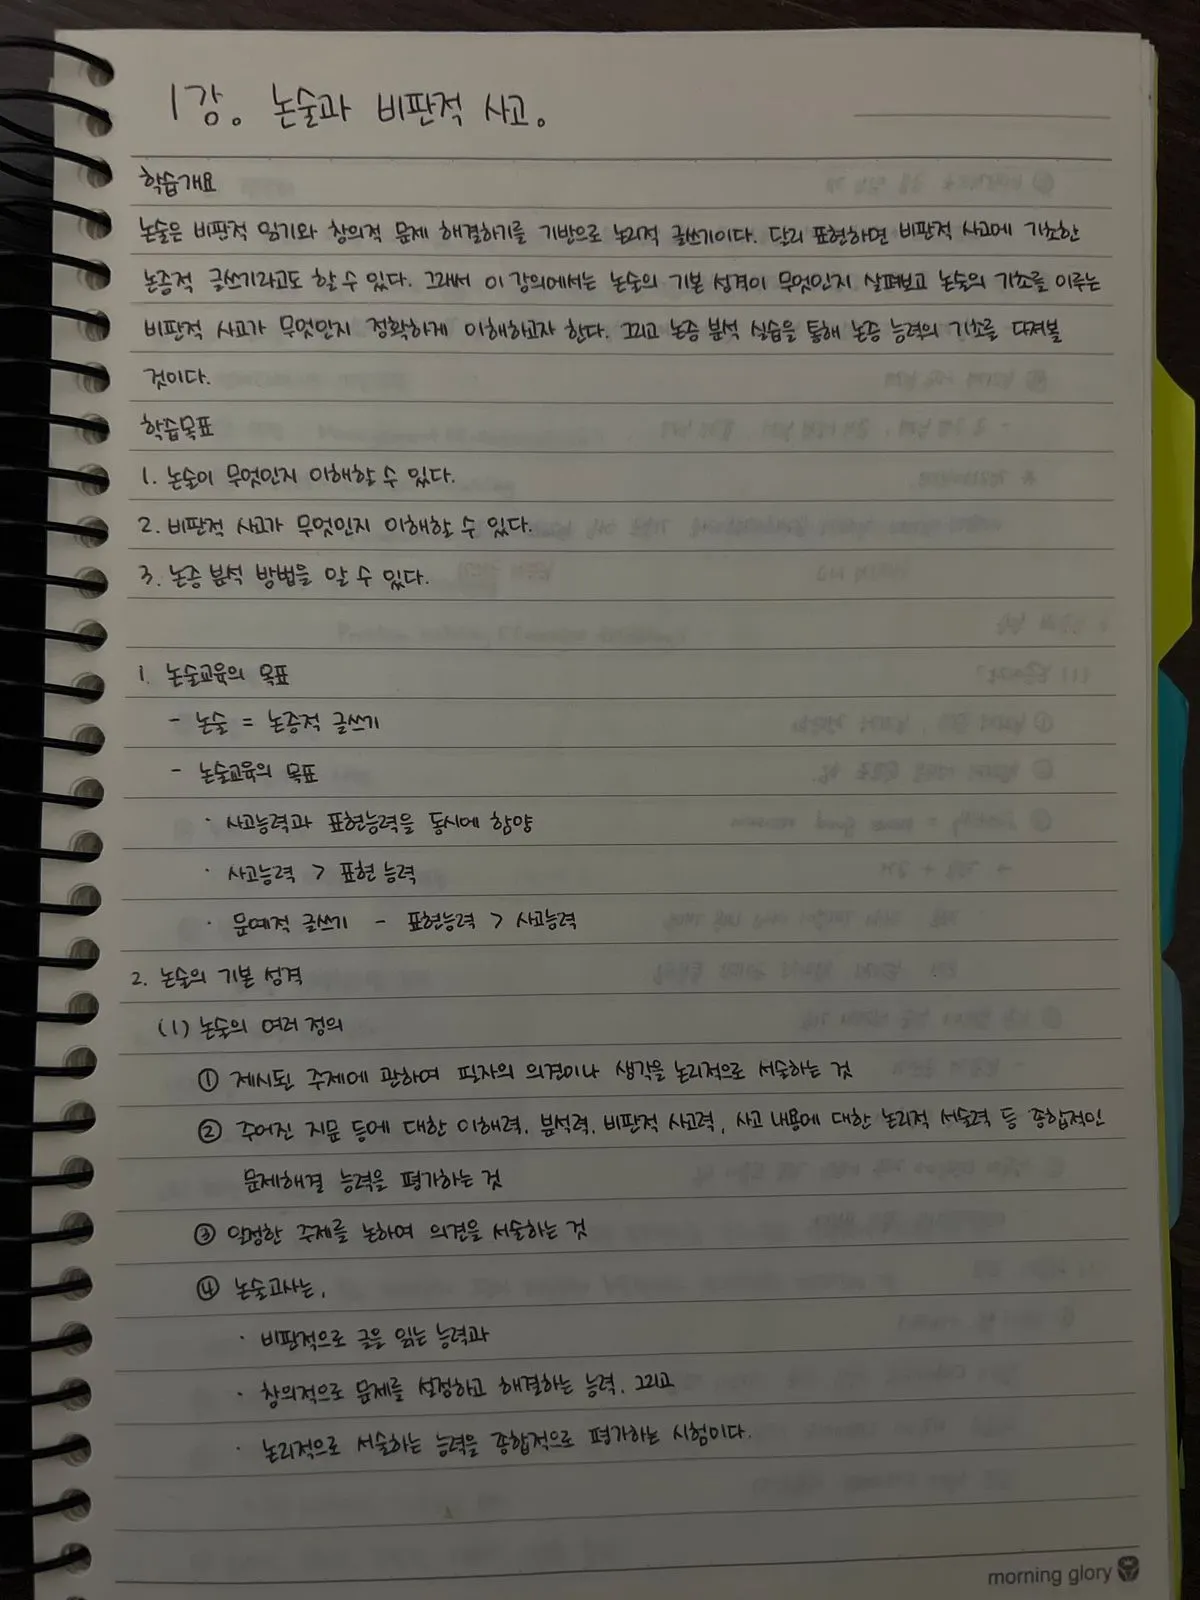 1강. 논술과 비판적 사고.
학습개요
논술은 비판적 읽기와 창의적 문제 해결하기를 기반으로 논리적 글쓰기이다. 달리 표현하면 비판적 사고에 기초한
논증적 글쓰기라고도 할 수 있다. 그래서 이 강의에서는 논술의 기본 성격이 무엇인지 살펴보고 논술의 기초를 이루는
비판적 사고가 무엇인지 정확하게 이해하고자 한다. 그리고 논증 분석 실습을 통해 논증 능력의 기초를 다져볼
것이다.
학습목표
1. 논술이 무엇인지 이해할 수 있다.
2. 비판적 사고가 무엇인지 이해할 수 있다.
3. 논증 분석 방법을 알 수 있다.
1. 논술교육의 목표
- 논술 = 논증적 글쓰기
- 논술교육의 목표
· 사고능력과 표현능력을 동시에 함양
· 사고능력 > 표현 능력
· 문예적 글쓰기 - 표현능력 > 사고능력
2. 논술의 기본 성격
(1) 논술의 여러 정의
① 제시된 주제에 관하여 필자의 의견이나 생각을 논리적으로 서술하는 것
② 주어진 지문 등에 대한 이해력, 분석력, 비판적 사고력, 사고 내용에 대한 논리적 서술력 등 종합적인
문제해결 능력을 평가하는 것
③ 일정한 주제를 논하여 의견을 서술하는 것
④ 논술고사는,
· 비판적으로 글을 읽는 능력과
· 창의적으로 문제를 설정하고 해결하는 능력, 그리고
· 논리적으로 서술하는 능력을 종합적으로 평가하는 시험이다.
morning glory